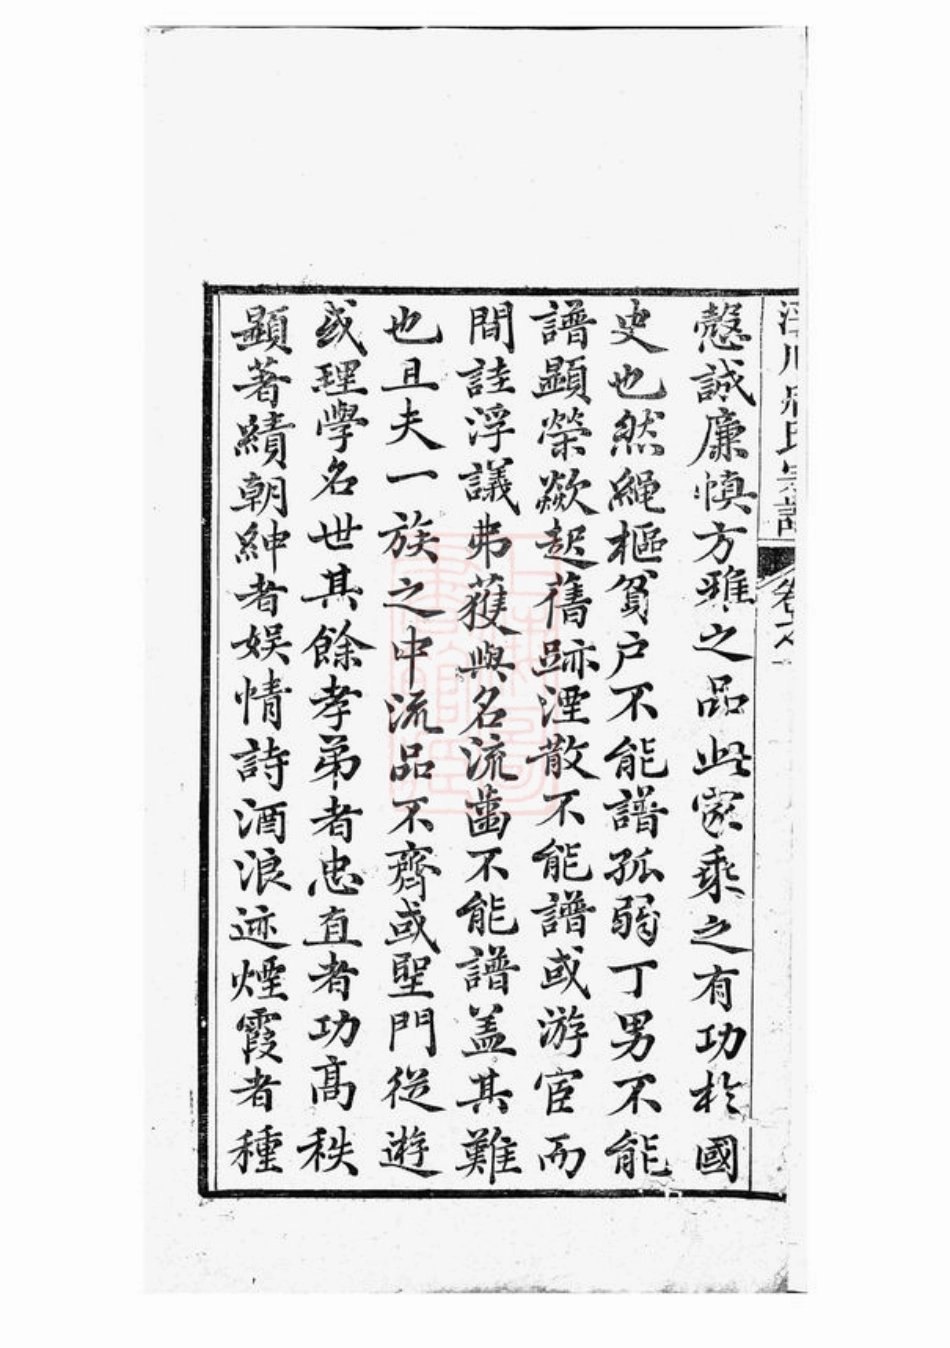 宗譜 卷之一
愨誠廉慎方雅之品此家乘之有功於國
史也然繩樞貧户不能譜孤弱丁男不能
譜顯榮歘起舊跡湮散不能譜或游宦而
間詿浮議弗獲與名流齒不能譜盖其難
也且夫一族之中流品不齊或聖門從遊
或理學名世其餘孝弟者忠直者功高秩
顯著績朝紳者娱情詩酒浪迹煙霞者種